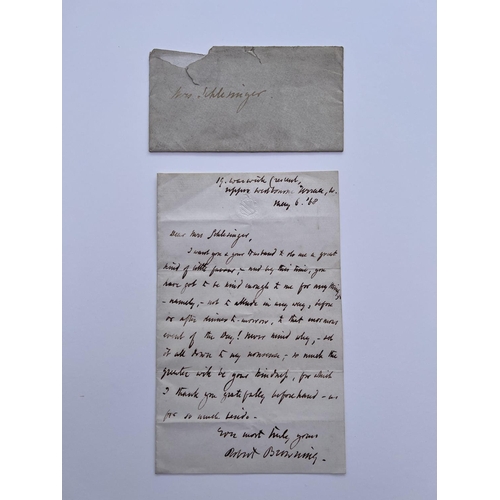 Mrs. Schlesinger
19. Warwick Crescent,
Upper Westbourne Terrace, W.
May 6. '68
Dear Mrs. Schlesinger,
I want you & your Husband to do me a great
kind of little favour, - and by this time, you
have got to be kind enough to me for anything
- namely, - not to allude in any way, before
or after dinner to-morrow, to that enormous
event of the Day! Never mind why, - set
it all down to my nonsense, - so much the
greater will be your kindness, for which
I thank you gratefully beforehand - as
for so much beside -
Ever most truly yours
Robert Browning -